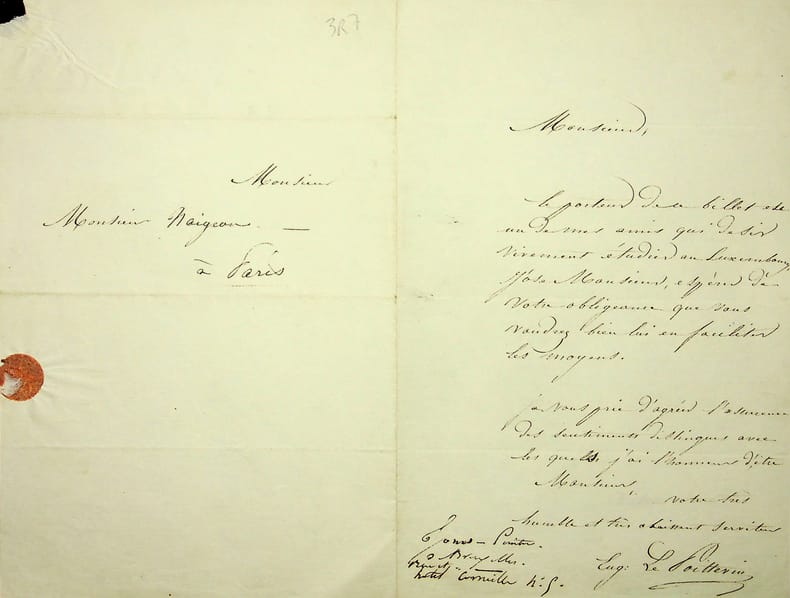 3R7
Monsieur
Monsieur Naigeon
à Paris
Monsieur,
le porteur de ce billet est
un de mes amis qui desir
vivement étudier au Luxembourg
J'ose Monsieur, espérer de
votre obligeance que vous
voudrez bien lui en faciliter
les moyens.
je vous prie d'agréer l'assurance
des sentiments distingués avec
les quels j'ai l'honneur d'être
Monsieur,
votre très
humble et très obéissant serviteur
Eug: Le Poittevin
Peintre.
hotel Corneille N. 5.